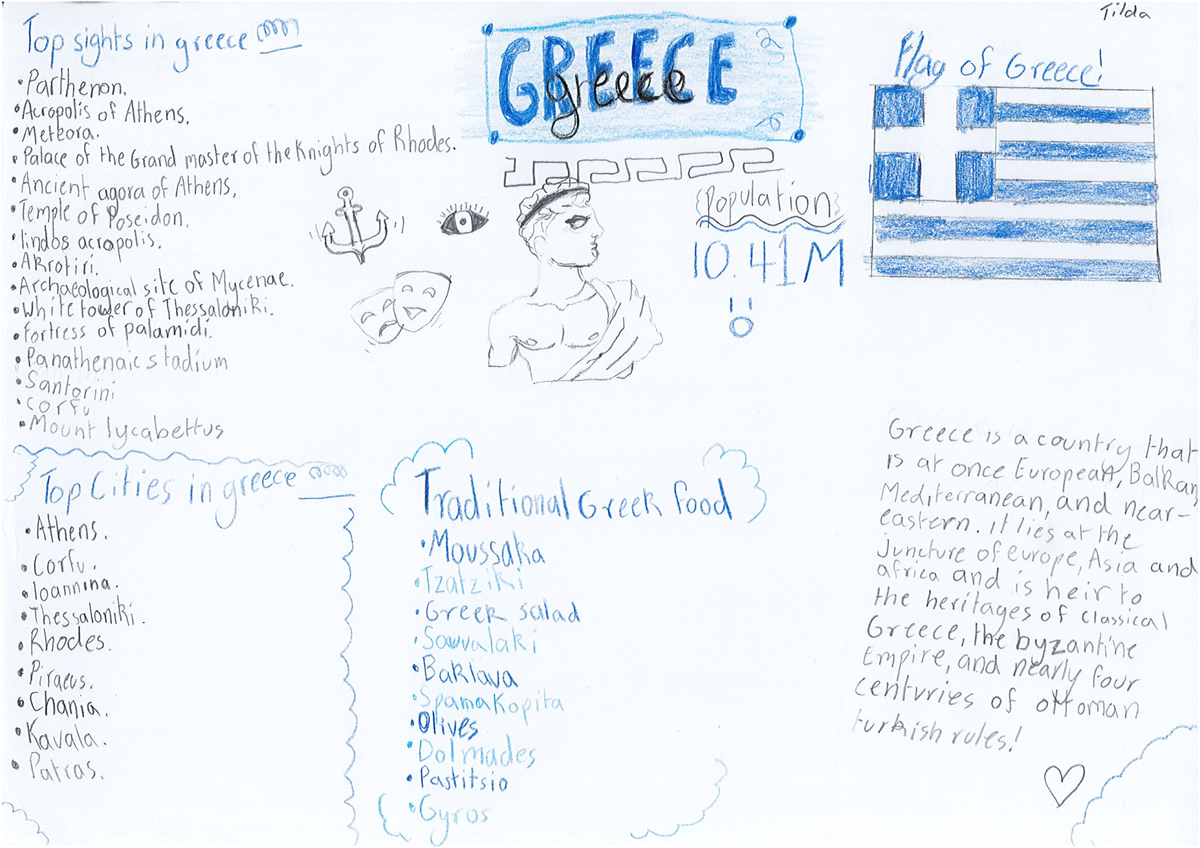 Tilda
Top sights in greece
• Parthenon.
• Acropolis of Athens.
• Meteora.
• Palace of the Grand master of the Knights of Rhodes.
• Ancient agora of Athens.
• Temple of Poseidon.
• lindos acropolis.
• Akrotiri.
• Archaeological site of Mycenae.
• White tower of Thessaloniki.
• Fortress of palamidi.
• Panathenaic stadium
• Santorini
• Corfu
• Mount lycabettus
GREECE
greece
Population
10.41M
Flag of Greece!
Top Cities in greece
• Athens.
• Corfu.
• Ioannina.
• Thessaloniki.
• Rhodes.
• Piraeus.
• Chania.
• Kavala.
• Patras.
Traditional Greek food
• Moussaka
• Tzatziki
• Greek salad
• Souvalaki
• Baklava
• Spamakopita
• Olives
• Dolmades
• Pastitsio
• Gyros
Greece is a country that
is at once European, Balkan,
Mediterranean, and near-
eastern. it lies at the
juncture of europe, Asia and
africa and is heir to
the heritages of classical
Greece, the byzantine
Empire, and nearly four
centuries of ottoman
turkish rules!